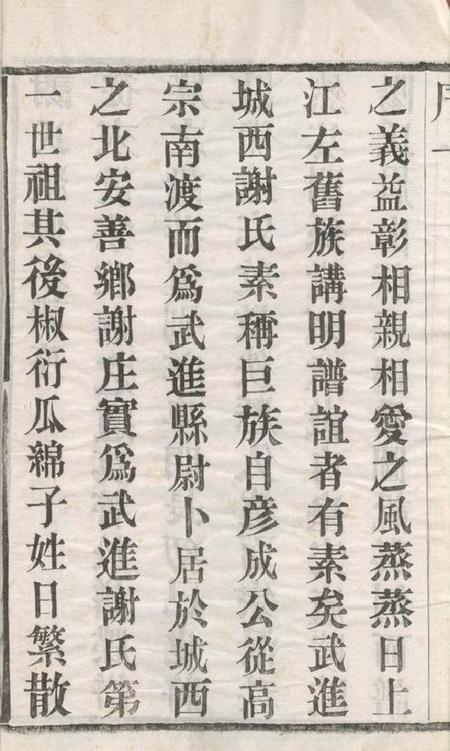 之義益彰相親相愛之風蒸蒸日上
江左舊族講明譜誼者有素矣武進
城西謝氏素稱巨族自彥成公從高
宗南渡而爲武進縣尉卜居於城西
之北安善鄉謝庄實爲武進謝氏第
一世祖其後椒衍瓜綿子姓日繁散